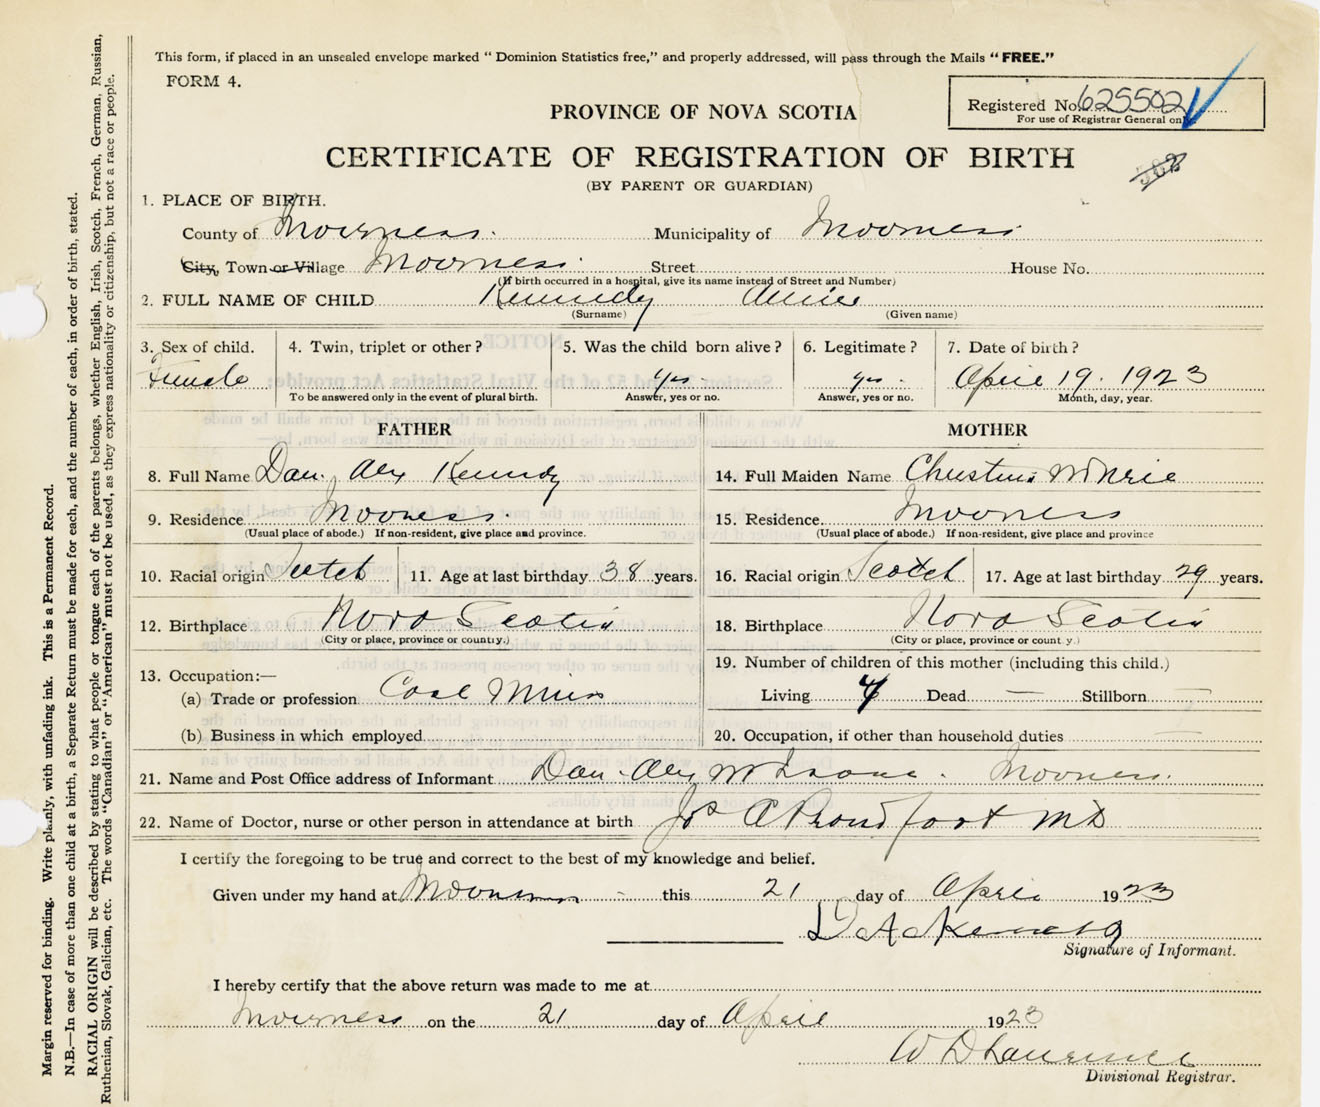 This form, if placed in an unsealed envelope marked “ Dominion Statistics free,” and properly addressed, will pass through the Mails “ FREE.”
FORM 4.
Registered No. 625502
For use of Registrar General on
PROVINCE OF NOVA SCOTIA
CERTIFICATE OF REGISTRATION OF BIRTH
(BY PARENT OR GUARDIAN)
1. PLACE OF BIRTH.
County of Inverness. Municipality of Inverness
City, Town or Village Inverness. Street House No.
(If birth occurred in a hospital, give its name instead of Street and Number)
2. FULL NAME OF CHILD Kennedy Annie
(Surname) (Given name)
3. Sex of child. 4. Twin, triplet or other ? 5. Was the child born alive ? 6. Legitimate ? 7. Date of birth ?
Female yes. yes. April 19. 1923
To be answered only in the event of plural birth. Answer, yes or no. Answer, yes or no. Month, day, year.
FATHER MOTHER
8. Full Name Dan. Alex Kennedy 14. Full Maiden Name
9. Residence Inverness. 15. Residence Inverness
(Usual place of abode.) If non-resident, give place and province. (Usual place of abode.) If non-resident, give place and province
10. Racial origin Scotch 11. Age at last birthday 38 years. 16. Racial origin Scotch 17. Age at last birthday 29 years.
12. Birthplace Nova Scotia 18. Birthplace Nova Scotia
(City or place, province or county.) (City or place, province or count y.)
13. Occupation:— 19. Number of children of this mother (including this child.)
(a) Trade or profession Coal Miner Living 4 Dead — Stillborn —
(b) Business in which employed 20. Occupation, if other than household duties —
21. Name and Post Office address of Informant Dan. Alex Inverness.
22. Name of Doctor, nurse or other person in attendance at birth Jos A Proudfoot MD
I certify the foregoing to be true and correct to the best of my knowledge and belief.
Given under my hand at Inverness this 21 day of April 1923
D A Kennedy
Signature of Informant.
I hereby certify that the above return was made to me at
Inverness on the 21 day of April 1923
W D Lawrence
Divisional Registrar.
Margin reserved for binding. Write plainly, with unfading ink. This is a Permanent Record.
N.B.—In case of more than one child at a birth, a Separate Return must be made for each, and the number of each, in order of birth, stated.
RACIAL ORIGIN will be described by stating to what people or tongue each of the parents belongs, whether English, Irish, Scotch, French, German, Russian,
Ruthenian, Slovak, Galician, etc. The words “Canadian” or “American” must not be used, as they express nationality or citizenship, but not a race or people.